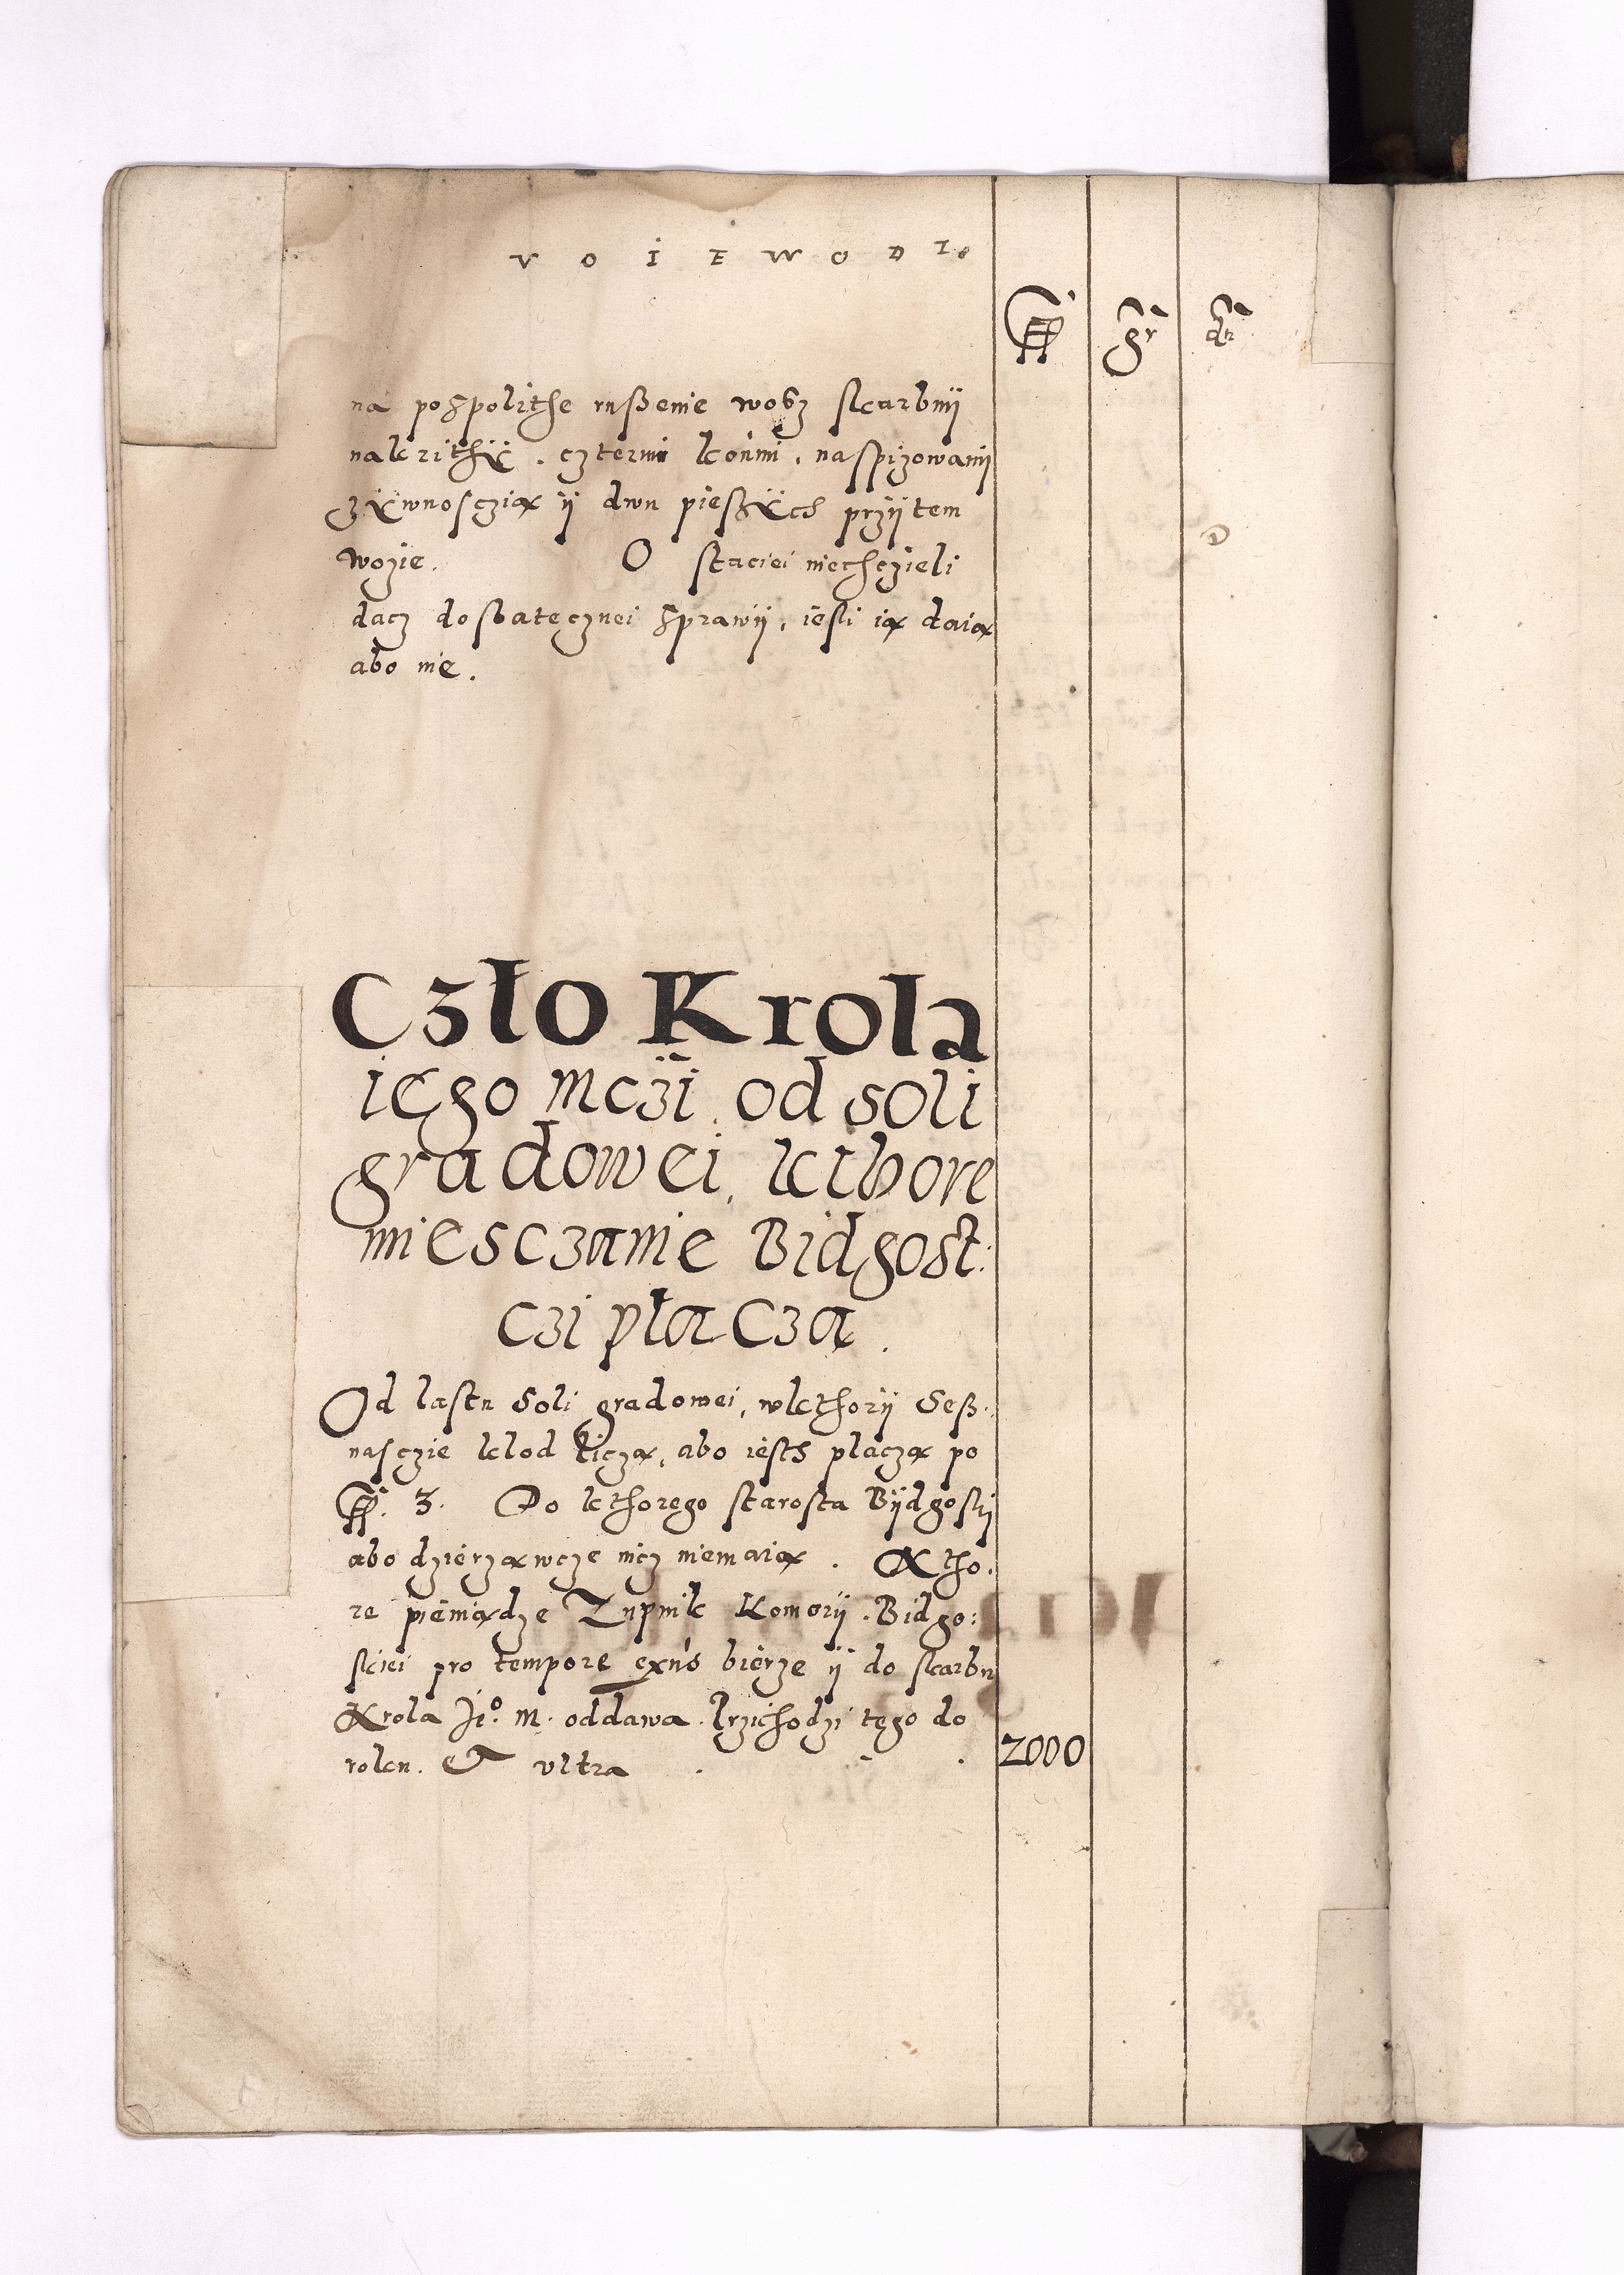 VOIEWODZ.
fl gr dn
na pospolithe rußenie wosz skarbnij
nakrithÿ. cztermi końmi, naspizowanij
zÿwnosczią ij dwu pießÿch przij tem
wozie. O staciei niechczieli
dacz dostatecznei sprawij, iesli ią daią
abo nie.
Czlo Krola
iego mczi od soli
gradowei, kthore
miesczanie Bidgost:
czi płaczą.
Od lastu soli gradowei, wkthorij seß.
nasczie klod liczą, abo iesth placzą po
fl. 3. Do kthorego starosta Bijdgoski
abo dzierzawcze nicz niemaią. Ktho.
re pieniądze Zupnik Komorij Bidgo:
skiei pro tempore exns bierze ij do skarbu
Krola Jº. M. oddawa. Przichodzi tego do
roku. Et ultra . . 2000